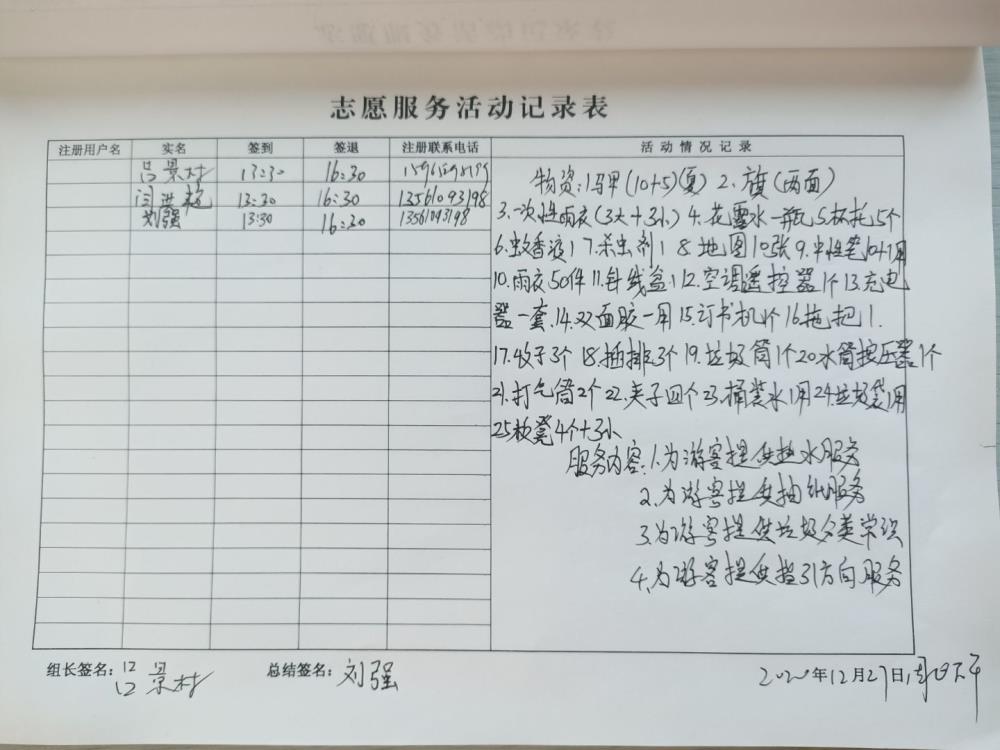 志愿服务活动记录表
注册用户名 实名 签到 签退 注册联系电话 活动情况记录
吕景村 13:30 16:30
闫 13:30 16:30 13561093198
刘强 13:30 16:30 13561093198
物资:1.马甲(10+5)(夏) 2.旗(两面)
3.一次性雨衣(3大+3小) 4.花露水一瓶 5.杯托5个
6.蚊香液1 7.杀虫剂1 8.地图10张 9.中性笔10+1用
10.雨衣50件 11.针线盒1 12.空调遥控器1个 13.充电
器一套.14.双面胶一用 15.订书机1个 16.拖把1.
17.收子3个 18.插排3个 19.垃圾筒1个 20.水筒按压器1个
21.打气筒2个 22.夹子四个 23.桶装水1用 24.垃圾袋1用
25.板凳4个+3小
服务内容:1.为游客提供热水服务
2.为游客提供抽纸服务
3.为游客提供垃圾分类常识
4.为游客提供指引方向服务
组长签名:吕景村 总结签名:刘强 2020年12月27日,周日下午